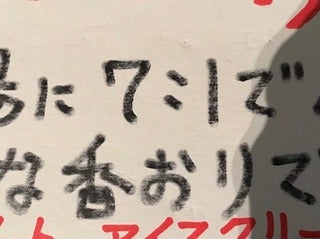 に7:1で
な香おりで
アイスクリー